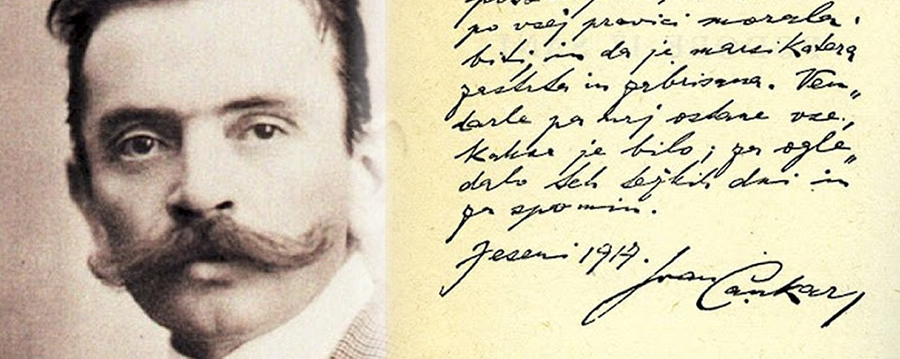 po vsej pravici morala
biti, in da je marsikatera
zastrta in zabrisana. Ven„
darle pa naj ostane vse,
kakor je bilo; za ogle„
dalo teh težkih dni in
za spomin.
Jeseni 1917. Ivan Cankar